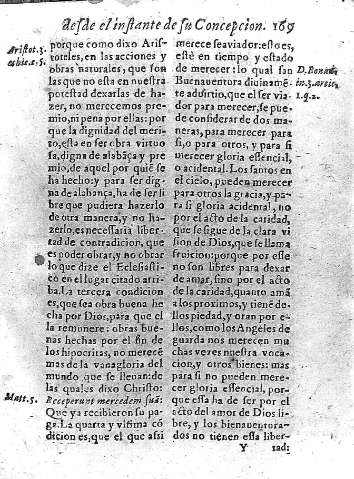 desde el instante de su Concepcion. 169
Aristot. 3.
porque como dixo Aris-
toteles, en las acciones y
obras naturales, que son
las que no esta en nuestra
potestad dexarlas de ha-
zer, no merecemos pre-
mio, ni pena por ellas: por
que la dignidad del meri-
to, esta en ser obra virtuo
sa, digna de alabãça y pre
mio, de aquel por quiẽ se
ha hecho: y para ser dig-
na de alabança, ha de ser li
bre que pudiera hazerlo
de otra manera, y no ha-
zerlo, es necessaria liber-
tad de contradicion, que
es poder obrar, y no obrar
lo que dize el Eclesiasti-
co en el lugar citado arri-
ba. La tercera condicion
es, que sea obra buena he
cha por Dios, para que el
la remunere: obras bue-
nas hechas por el fin de
los hipocritas, no merecẽ
mas de la vanagloria del
mundo que se llenan: de
las quales dixo Christo:
Matt. 5.
Receperunt mercedem suã:
Que ya recibieron su pa-
ga. La quarta y vltima cõ
dicion es, que el que assi
merece sea viador: esto es,
esté en tiempo y estado
de merecer: lo qual san
D. Bonau.
Buenauentura diuinamẽ-
te aduirtio, que el ser via-
1.q.2.
dor para merecer, se pue-
de considerar de dos ma-
neras, para merecer para
si, o para otros, y para si
merecer gloria essencial,
o acidental. Los santos en
el cielo, pueden merecer
para otros la gracia, y pa-
ra si gloria acidental, no
por el acto de la caridad,
que se sigue de la clara vi
sion de Dios, que se llama
fruicion: porque por esse
no son libres para dexar
de amar, sino por el acto
de la caridad, quanto amã
a los proximos, y tienẽ de-
llos piedad, y oran por e-
llos, como los Angeles de
guarda nos merecen mu
chas vezes nuestra voca-
cion, y otros bienes: mas
para si no pueden mere-
cer gloria essencial, por-
que essa ha de ser por el
acto del amor de Dios li-
bre, y los bienauentura-
dos no tienen essa liber-
Y tad: